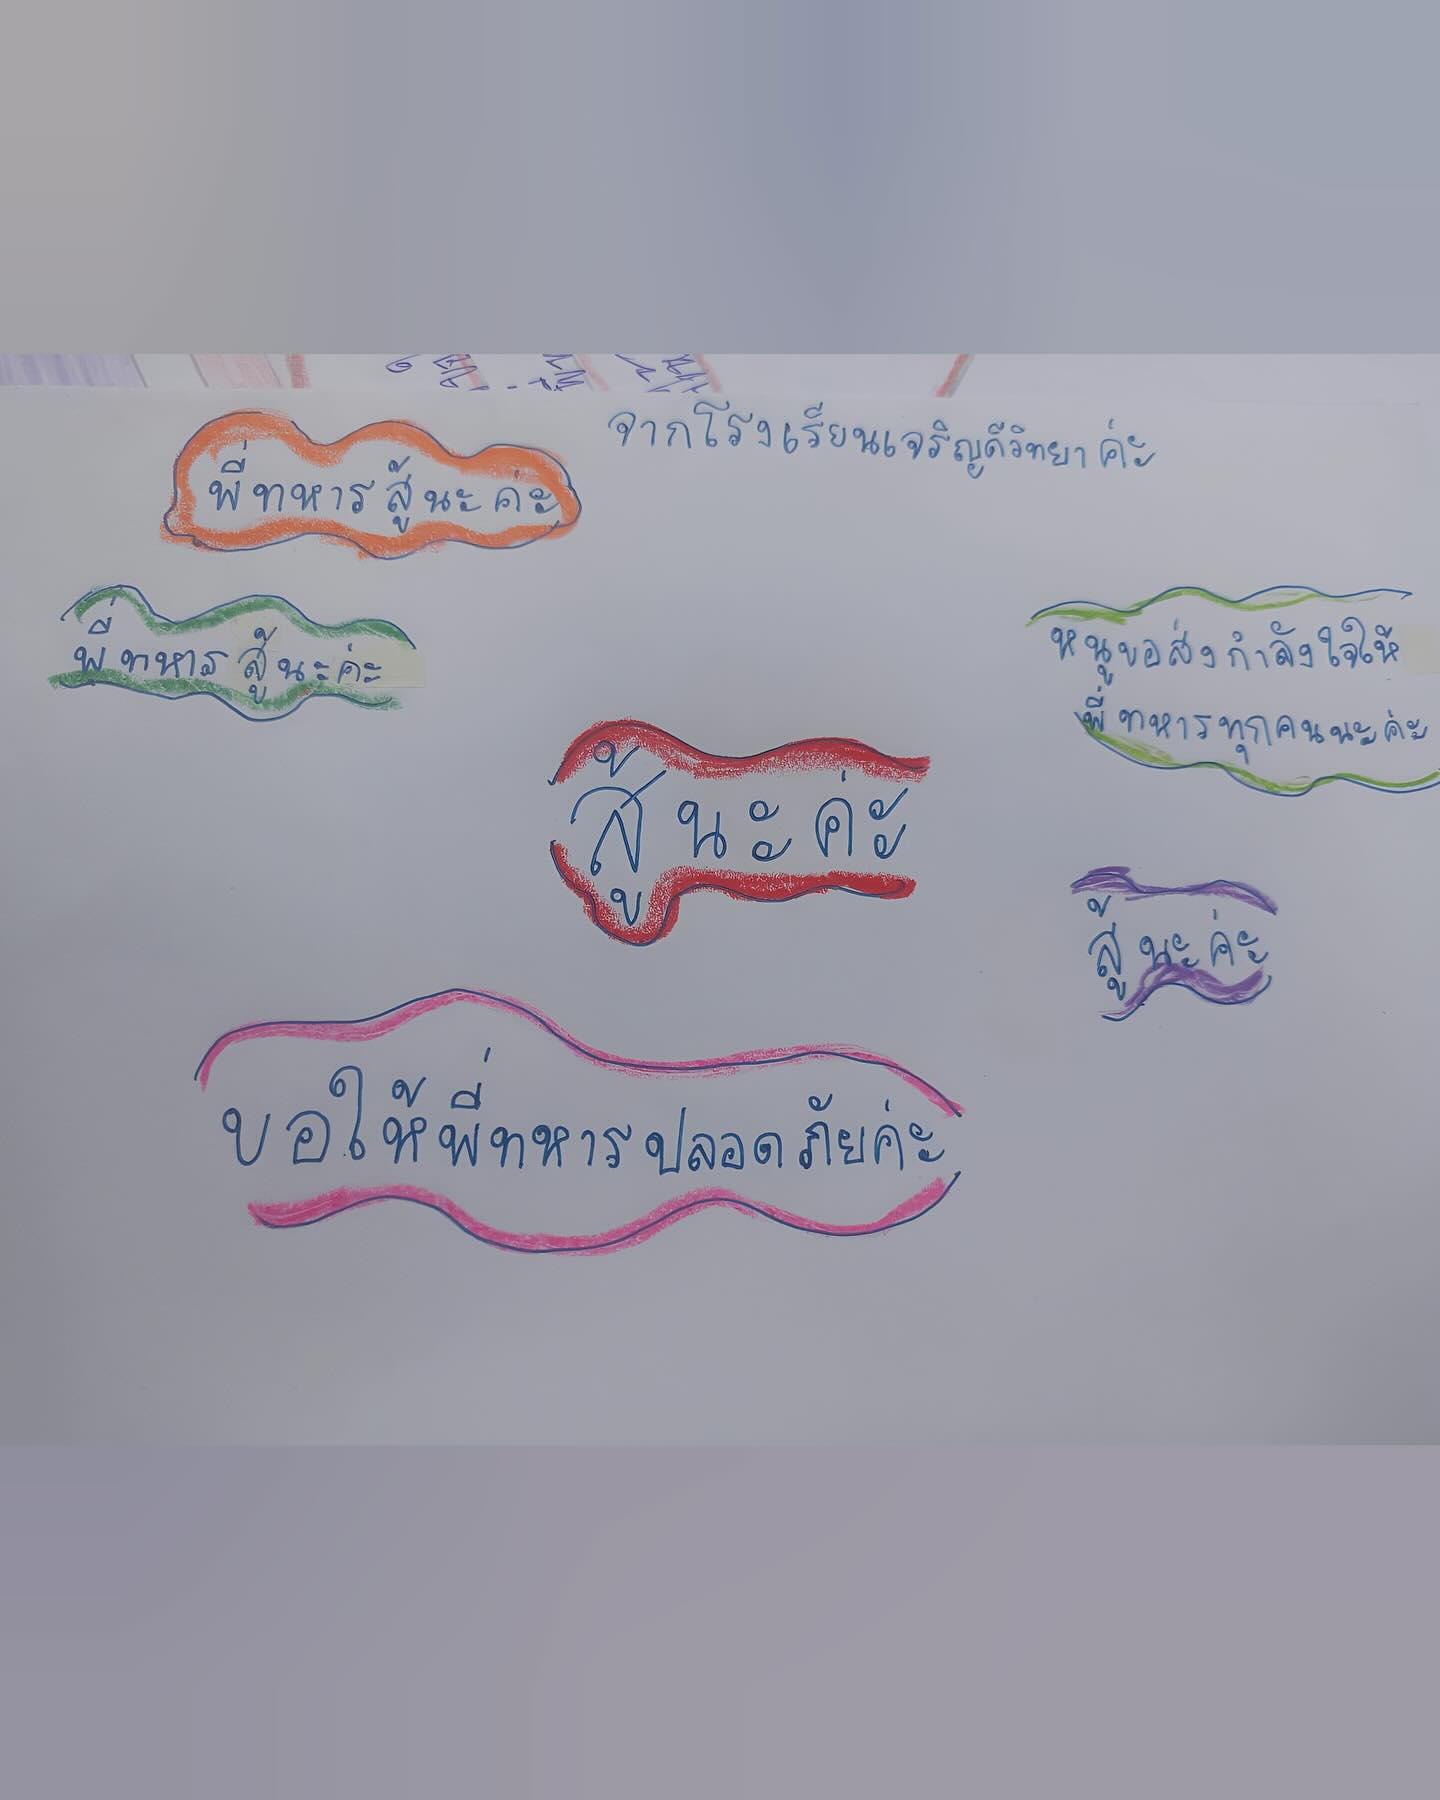 จากโรงเรียนเจริญดีวิทยา ค่ะ
พี่ทหารสู้นะค่ะ
พี่ทหารสู้นะค่ะ
หนูขอส่งกำลังใจให้
พี่ทหารทุกคนนะค่ะ
สู้นะค่ะ
สู้นะค่ะ
ขอให้พี่ทหารปลอดภัยค่ะ